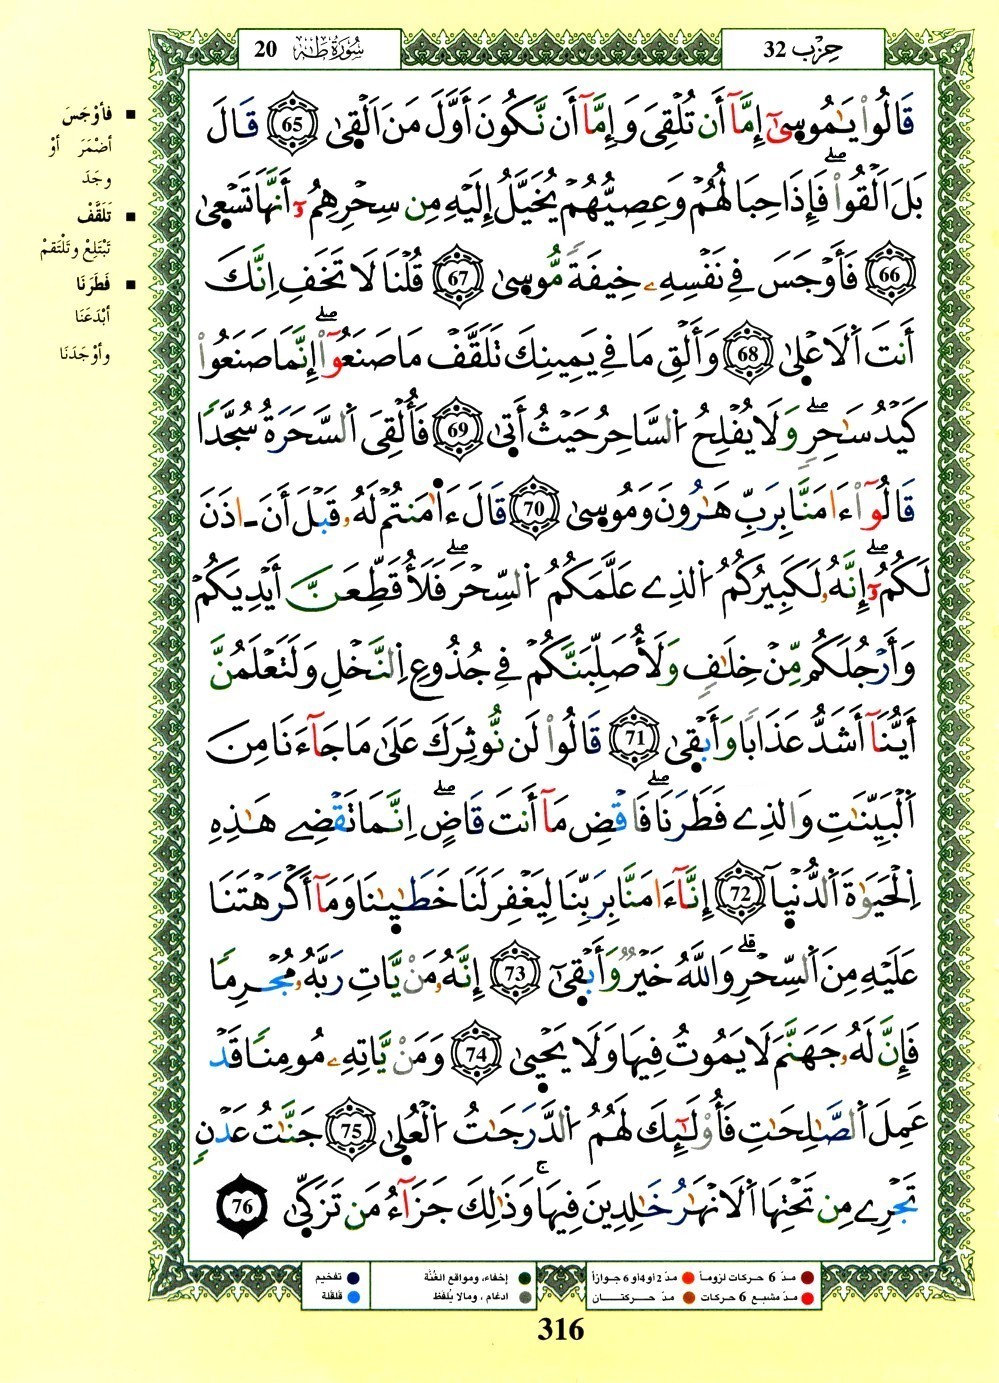 سُورَةُ طَهَ 20
حِزْب 32
قَالُواْ يَٰمُوسىٰٓ إِمَّآ أَن تُلْقِىَ وَإِمَّآ أَن نَّكُونَ أَوَّلَ مَنَ اَلْقىٰ 65 قَالَ
بَلَ اَلْقُواْ فَإِذَا حِبَالُهُمْ وَعِصِيُّهُمْ يُخَيَّلُ إِلَيْهِ مِن سِحْرِهِمُۥٓ أَنَّهَا تَسْعىٰ
66 فَأَوْجَسَ فِے نَفْسِهِۦ خِيفَةً مُّوسىٰ 67 قُلْنَا لَا تَخَفِ اِنَّكَ
أَنتَ اَلَاعْلىٰ 68 وَأَلْقِ مَا فِے يَمِينِكَ تَلَقَّفْ مَا صَنَعُوٓاْ إِنَّمَا صَنَعُواْ
كَيْدُ سَٰحِرٍ وَلَا يُفْلِحُ اُلسَّاحِرُ حَيْثُ أَتىٰ 69 فَأُلْقِىَ اَلسَّحَرَةُ سُجَّداً
قَالُوٓاْ ءَامَنَّا بِرَبِّ هَٰرُونَ وَمُوسىٰ 70 قَالَ ءَاٰمَنتُمْ لَهُۥ قَبْلَ أَنَ اٰذَنَ
لَكُمُۥٓ إِنَّهُۥ لَكَبِيرُكُمُ اُلذِے عَلَّمَكُمُ اُلسِّحْرَ فَلَأُقَطِّعَنَّ أَيْدِيَكُمْ
وَأَرْجُلَكُم مِّنْ خِلَٰفٍ وَلَأُصَلِّبَنَّكُمْ فِے جُذُوعِ اِلنَّخْلِ وَلَتَعْلَمُنَّ
أَيُّنَآ أَشَدُّ عَذَاباً وَأَبْقىٰ 71 قَالُواْ لَن نُّوثِرَكَ عَلَىٰ مَا جَآءَنَا مِنَ
اَلْبَيِّنَٰتِ وَالذِے فَطَرَنَا فَاقْضِ مَآ أَنتَ قَاضٍ اِنَّمَا تَقْضِے هَٰذِهِ
اِلْحَيَوٰةَ اَلدُّنْيآ 72 إِنَّآ ءَامَنَّا بِرَبِّنَا لِيَغْفِرَ لَنَا خَطَٰيٰنَا وَمَآ أَكْرَهْتَنَا
عَلَيْهِ مِنَ اَلسِّحْرِ وَاللَّهُ خَيْرٌ وَأَبْقىٰٓ 73 إِنَّهُۥ مَنْ يَّاتِ رَبَّهُۥ مُجْرِماً
فَإِنَّ لَهُۥ جَهَنَّمَ لَا يَمُوتُ فِيهَا وَلَا يَحْيىٰ 74 وَمَنْ يَّاتِهِۦ مُومِناً قَدْ
عَمِلَ اَلصَّٰلِحَٰتِ فَأُوْلَٰٓئِكَ لَهُمُ اُلدَّرَجَٰتُ اُلْعُلىٰ 75 جَنَّٰتُ عَدْنٍ
تَجْرِے مِن تَحْتِهَا اَلَانْهَٰرُ خَٰلِدِينَ فِيهَا وَذَٰلِكَ جَزَآءُ مَن تَزَكّىٰ 76
■ فأوْجَسَ
أضْمَرَ أوْ
وجَدَ
■ تَلَقَّفْ
تَبْتَلِعْ وتَلْتَقِمْ
■ فَطَرَنَا
أبْدَعَنَا
وأوْجَدَنَا
● مدّ 6 حركات لزوماً ● مدّ 2 أو 4 أو 6 جوازاً
● مدّ مشبع 6 حركات ● مدّ حركتــان
● إخفاء، ومواقع الغُنَّة
● ادغام، ومالا يُلفَظ
● تفخيم
● قلقلة
316